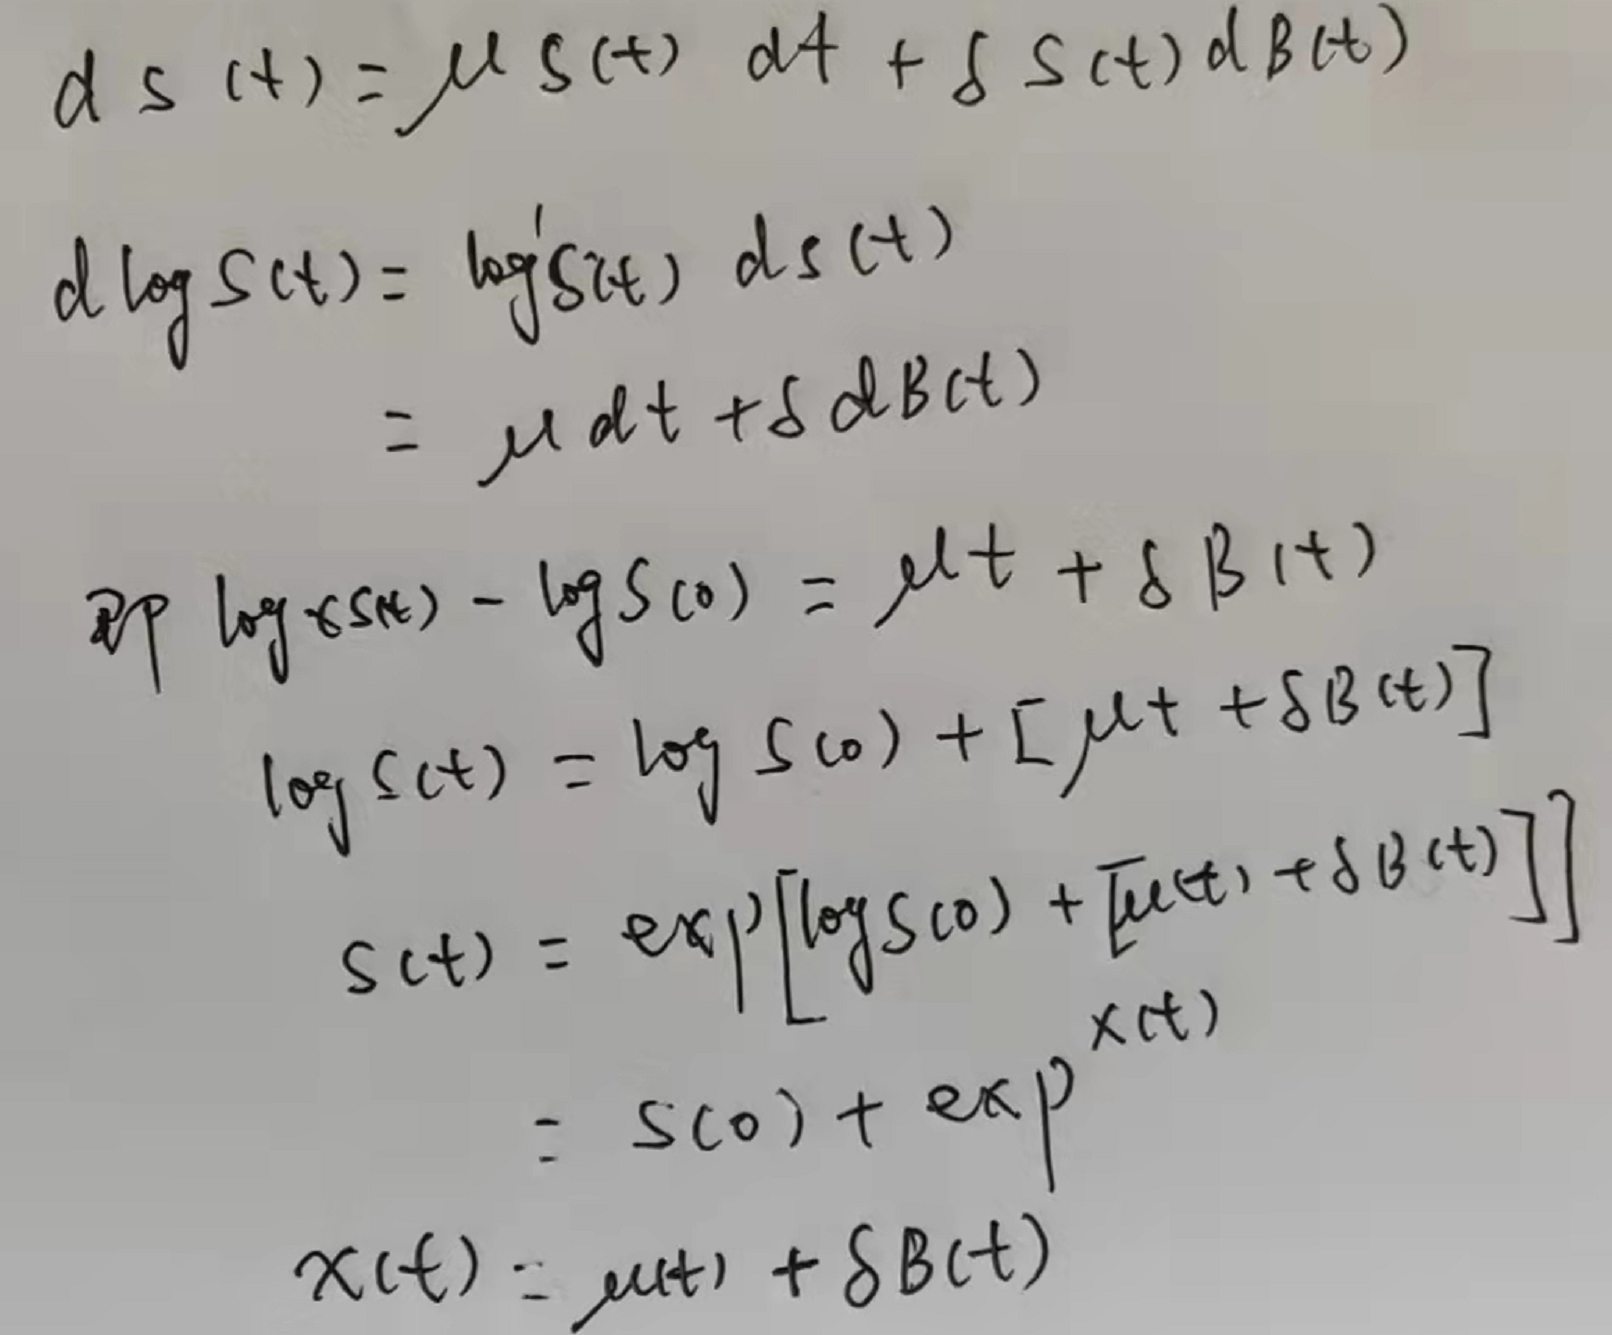 ds(t) = μ S(t) dt + δ S(t) dB(t)
d log S(t) = log' S(t) ds(t)
= μ dt + δ dB(t)
即 log S(t) - log S(0) = μt + δ B(t)
log S(t) = log S(0) + [μt + δB(t)]
S(t) = exp[log S(0) + [μ(t) + δB(t)]]
= S(0) + exp^{x(t)}
x(t) = μ(t) + δB(t)